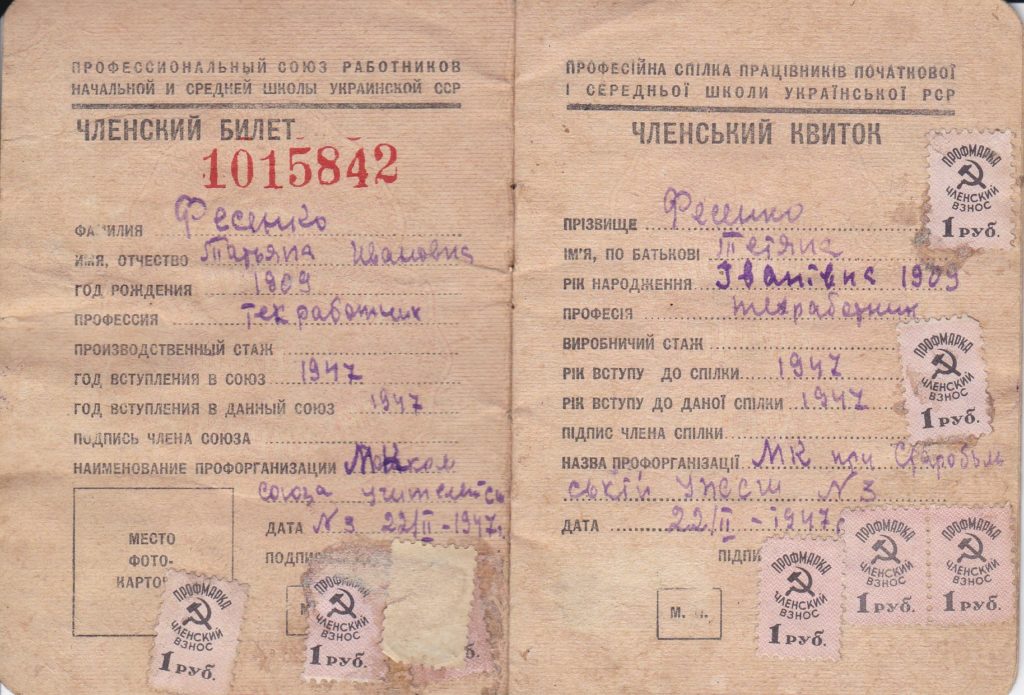 ПРОФЕССИОНАЛЬНЫЙ СОЮЗ РАБОТНИКОВ
НАЧАЛЬНОЙ И СРЕДНЕЙ ШКОЛЫ УКРАИНСКОЙ ССР
ЧЛЕНСКИЙ БИЛЕТ
1015842
ФАМИЛИЯ Фесенко
ИМЯ, ОТЧЕСТВО Татьяна Ивановна
ГОД РОЖДЕНИЯ 1909
ПРОФЕССИЯ техработник
ПРОИЗВОДСТВЕННЫЙ СТАЖ
ГОД ВСТУПЛЕНИЯ В СОЮЗ 1947
ГОД ВСТУПЛЕНИЯ В ДАННЫЙ СОЮЗ 1947
ПОДПИСЬ ЧЛЕНА СОЮЗА
НАИМЕНОВАНИЕ ПРОФОРГАНИЗАЦИИ
союза
ДАТА N 3 22/II-1947г.
МЕСТО
ФОТО-
ПРОФМАРКА
ЧЛЕНСКИЙ
ВЗНОС
1 РУБ.
ПРОФМАРКА
ЧЛЕНСКИЙ
ВЗНОС
1 РУБ.
ПРОФЕСІЙНА СПІЛКА ПРАЦІВНИКІВ ПОЧАТКОВОЇ
І СЕРЕДНЬОЇ ШКОЛИ УКРАЇНСЬКОЇ РСР
ЧЛЕНСЬКИЙ КВИТОК
ПРІЗВИЩЕ Фесенко
ІМ'Я, ПО БАТЬКОВІ Тетяна
РІК НАРОДЖЕННЯ Іванівна 1909
ПРОФЕСІЯ техработник
ВИРОБНИЧИЙ СТАЖ
РІК ВСТУПУ ДО СПІЛКИ 1947
РІК ВСТУПУ ДО ДАНОЇ СПІЛКИ 1947
ПІДПИС ЧЛЕНА СПІЛКИ
НАЗВА ПРОФОРГАНІЗАЦІЇ МК при Старобіль
ській N 3
ДАТА 22/II-1947
М. П.
ПРОФМАРКА
ЧЛЕНСКИЙ
ВЗНОС
1 РУБ.
ПРОФМАРКА
ЧЛЕНСКИЙ
ВЗНОС
1 РУБ.
ПРОФМАРКА
ЧЛЕНСКИЙ
ВЗНОС
1 РУБ.
ПРОФМАРКА
ЧЛЕНСКИЙ
ВЗНОС
1 РУБ.
ПРОФМАРКА
ЧЛЕНСКИЙ
ВЗНОС
1 РУБ.